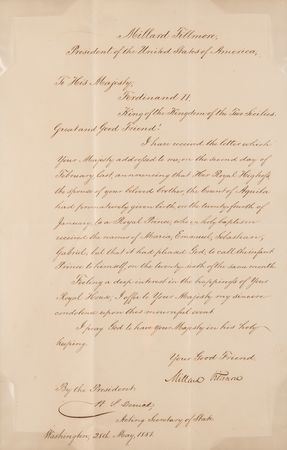 Millard Fillmore,
President of the United States of America,
To His Majesty,
Ferdinand II.
King of the Kingdom of the Two Sicilies.
Great and Good Friend:
I have received the letter which
Your Majesty addressed to me, on the second day of
February last, announcing that Her Royal Highness
the spouse of your beloved brother, the Count of Aquila
had prematurely given birth, on the twenty fourth of
January, to a Royal Prince, who in holy baptism
received the names of Maria, Emanuel, Sebastian,
Gabriel, but that it had pleased God, to call the infant
Prince to himself, on the twenty sixth of the same month.
Feeling a deep interest in the happiness of Your
Royal House, I offer to Your Majesty my sincere
condolence upon this mournful event.
I pray God to have your Majesty in his holy
keeping.
Your Good Friend,
Millard Fillmore
By the President:
Acting Secretary of State.
Washington, 28th May, 1851.